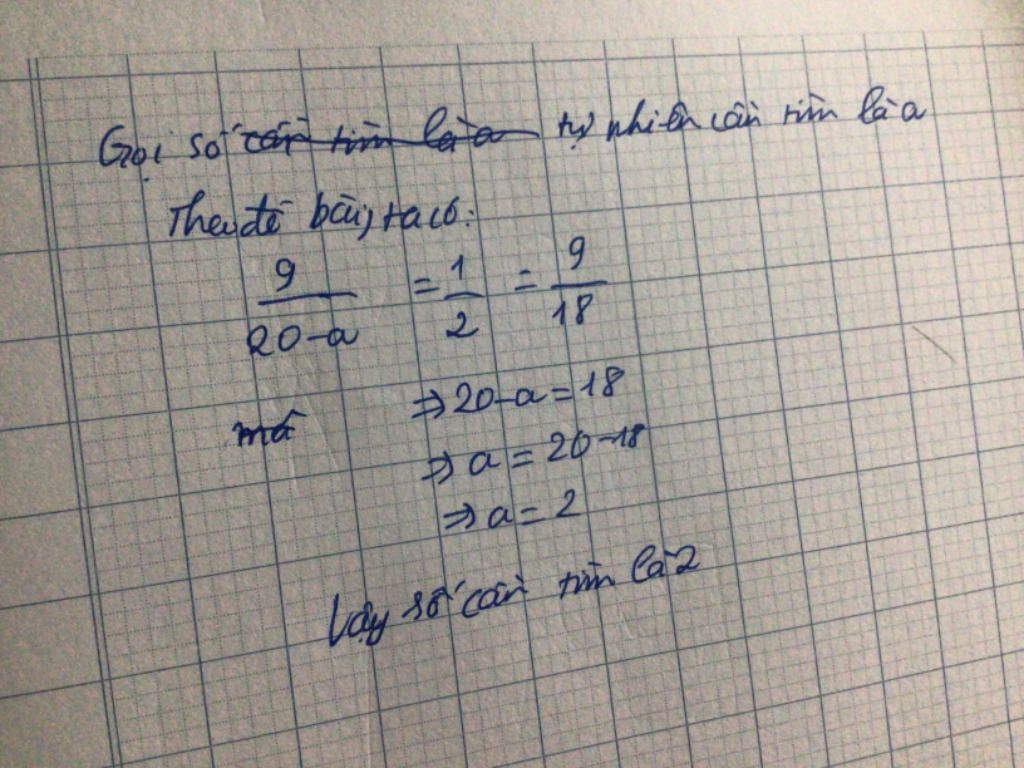 Gọi số cần tìm là a tự nhiên cần tìm là a
Theo đề bài, ta có:
9/(20-a) = 1/2 = 9/18
⇒ 20-a = 18
mà
⇒ a = 20-18
⇒ a = 2
Vậy số cần tìm là 2